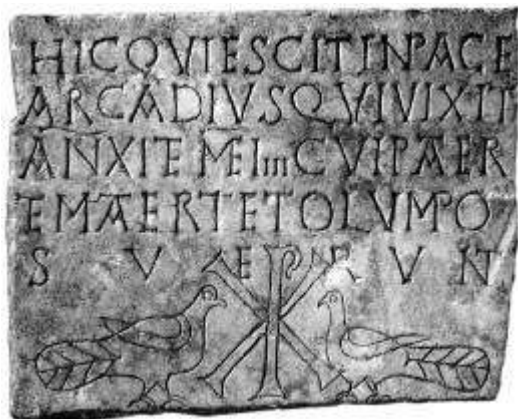 HICQVIESCITINPACE
ARCADIVSQVIVIXIT
ANXITEMEIIIICVIPAER
EMAERTETOLVMPO
S V E R V N